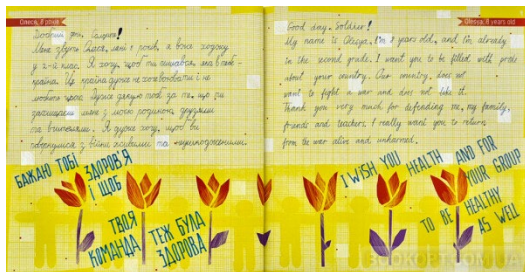 Олеся, 8 років
Добрий день, Солдате!
Мене звуть Олеся, мені 8 років, я вже ходжу
у 2-й клас. Я хочу, щоб ти пишався, яка в тебе
країна. Ця країна дуже не хоче воювати і не
любить цього. Дуже дякую тобі за те, що ти
захищаєш мене з моєю родиною, друзями
та вчителями. Я дуже хочу, щоб ви
повернулися з війни живими та неушкодженими.
БАЖАЮ ТОБІ ЗДОРОВ'Я
І ЩОБ
ТВОЯ
КОМАНДА ТЕЖ БУЛА
ЗДОРОВА
Olesya, 8 years old
Good day, Soldier!
My name is Olesya, I'm 8 years old, and I'm already
in the second grade. I want you to be filled with pride
about your country. Our country, does not
want to fight a war and does not like it.
Thank you very much for defending me, my family,
friends and teachers. I really want you to return
from the war alive and unharmed.
I WISH YOU HEALTH AND FOR
YOUR GROUP
TO BE HEALTHY
AS WELL
BOOKOPT.COM.UA